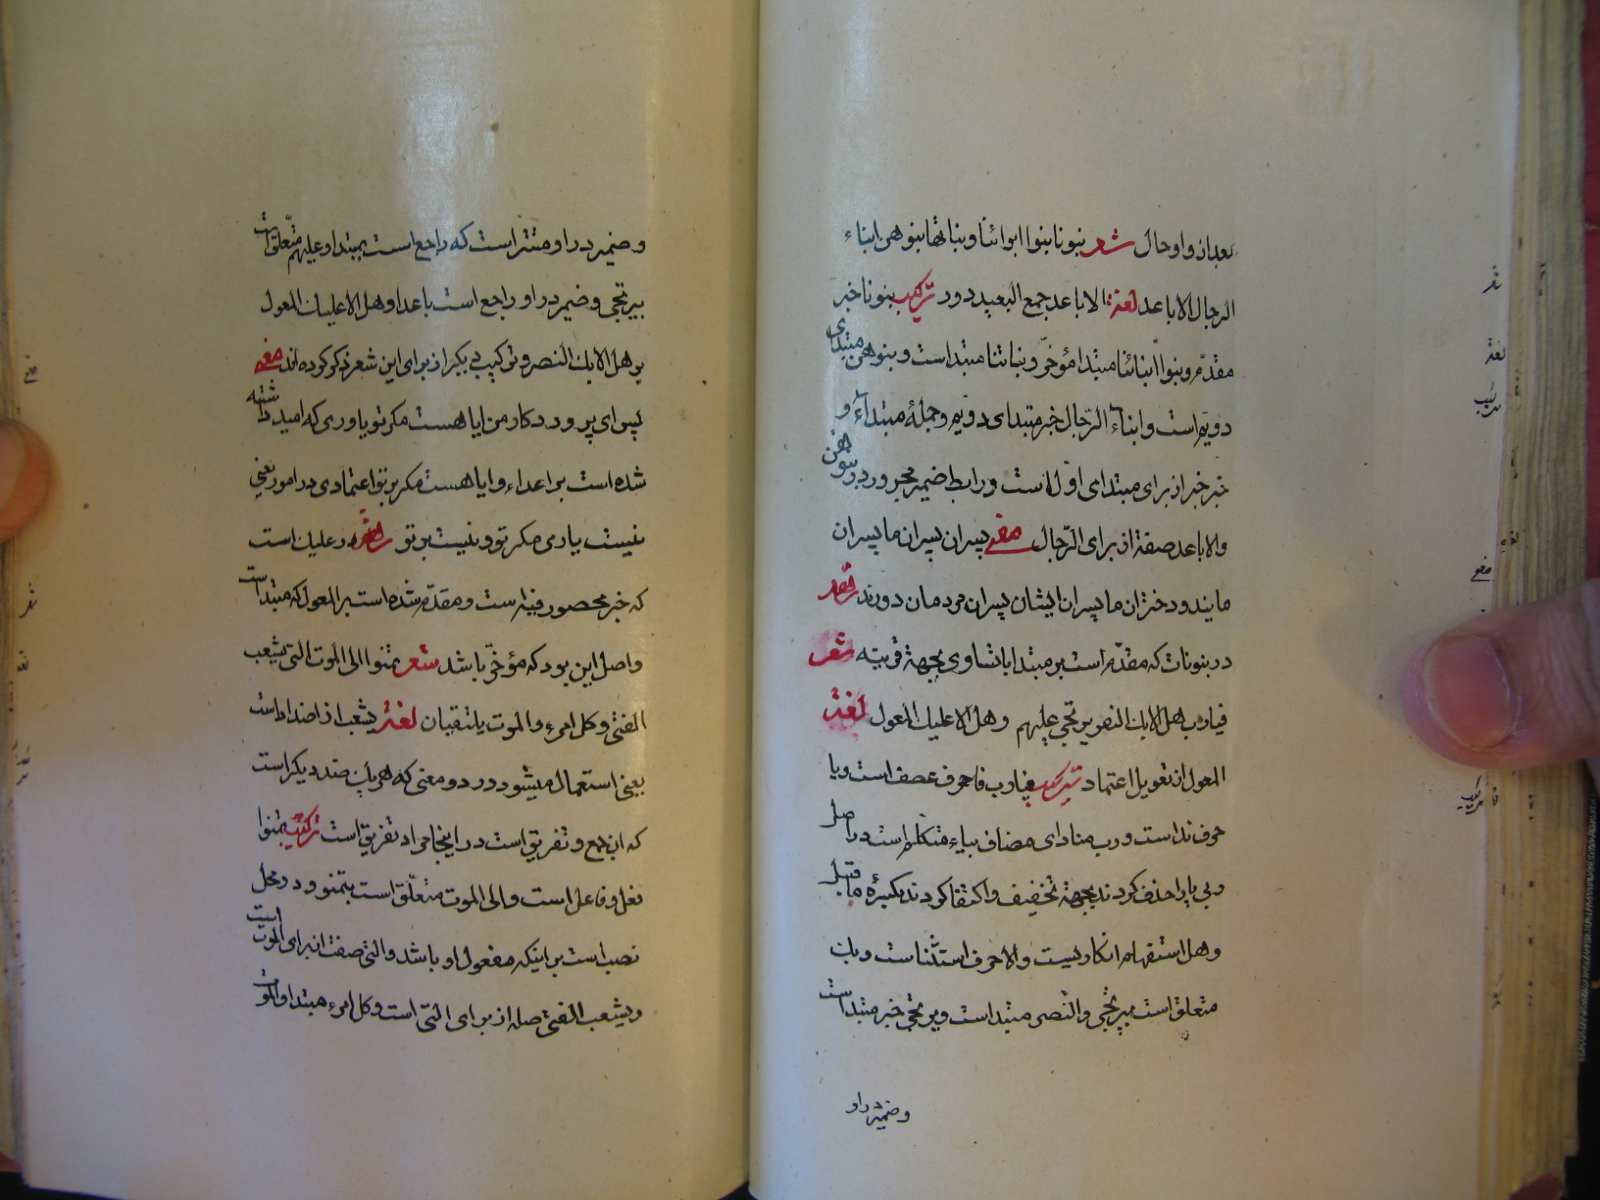 بعد از واو حال شعر بنونا بنوا ابوائنا وبناتها بنوهن ابناء
الرجال الاباعد لغة الاباعد جمع البعید دور ترکیب بنونا خبر
مقدّم وبنوا ابنائنا مبتدا مؤخّر وبناتنا مبتداست وبنوهن مبتدای
دویّم است وابناء الرّجال خبر مبتدای دویّم وجملهٔ مبتداء و
خبر خبر از برای مبتدای اول است ورابط ضمیر مجرور در بنوهن
والاباعد صفة از برای الرّجال معنی پسران پسران ما پسران
مایند ودختران ما پسران ایشان پسران مردمان دورند
در بنونات که مقدّم است بر مبتدا با تساوی بجهة قرینه شعر
فیارب هل الا بك النصر یرتجی علیهم وهل الا علیك المعول لغة
المعول از تعویل اعتماد ترکیب فیارب فا حرف عصف است ویا
حرف نداست ورب منادای مضاف بیاء متکلم است در اصل
ربی یا را حذف کردند بجهة تخفیف واکتفا کردند بکسرهٔ ماقبل
وهل استفهام انکاریست والا حرف استثناست وبك
متعلق است بیرتجی والنّصر مبتداست ویرتجی خبر مبتداست
وضمیر در او
وضمیر در او مستتر است که راجع است بمبتدا وعلیهم متعلق است
بیرتجی وضمیر در او راجع است باعدا وهل الا علیك المعول
بر هل الا بك النصر وترکیب دیگر از برای این شعر ذکر کرده اند معنی
پس ای پروردکار من ایا هست مکر تو یاوری که امید داشته
شده است بر اعداء وایا هست مکر بر تو اعتمادی در امور یعنی
نیست یاری مکر تو ونیست بر تو در علیك است
که خبر محصور فیه است ومقدّم شده است بر المعول که مبتداست
واصل این بود که مؤخّر باشد شعر تمنوا الی الموت التی یشعب
الفتی وکل امرء والموت یلتقیان لغة یشعب از اضداد است
یعنی استعمال میشود در دو معنی که هر یك ضد دیکر است
که ان جمع وتفریق است در اینجا مراد تفریق است ترکیب تمنوا
فعل وفاعل است والی الموت متعلّق است بتمنو ودر محل
نصب است بر اینکه مفعول او باشد والتی صفت از برای الموت است
ویشعب الفتی صله از برای التی است وکل امرء مبتدا والموت